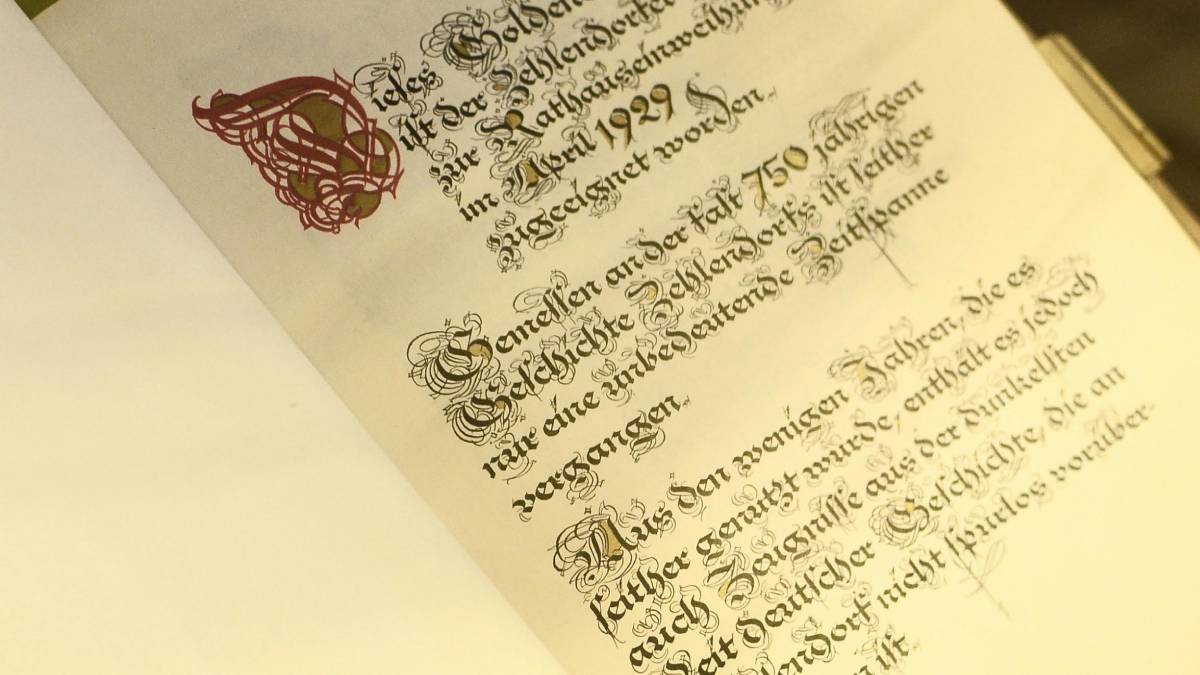 Dieses Golden
ist der Zehlendorfer
zur Rathauseinweihung
im April 1929
zugeeignet worden.
Gemessen an der fast 750 jährigen
Geschichte Zehlendorfs ist seither
nur eine unbedeutende Zeitspanne
vergangen.
Aus den wenigen Jahren, die es
seither genutzt wurde, enthält es jedoch
auch Zeugnisse aus der dunkelsten
Zeit deutscher Geschichte, die an
lendorf nicht spurlos vorüber-
n ist.